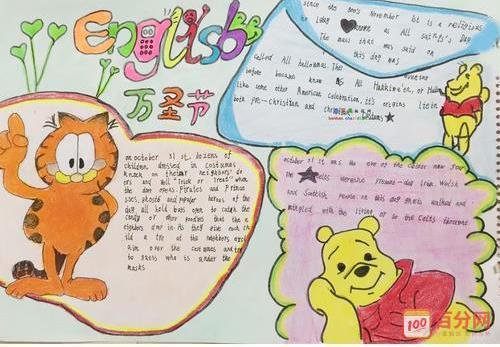 English
万圣节
since the 800's November 1st is a religious
holiday known as All saints's Day
The mass that was said on
this day was
called All hallowmas. The evening
before became known as All Hakkineen, or Hallo
like some other American celebration, its origins lie in
both pre-Christian and christian customs
on october 31 st. dozens of
children dressed in costumes
knock on their neighbors' do
ors and yell "Trick or Treat" when
the door opens. Pirates and Prince
sses, ghosts and popular heroes of the
day all hold bags open to catch the
candy or other goodies that the n
eighbors drop in. As they give each ch
ild a treat the neighbors excl
aim over the costumes and try
to guess who is under the
masks
october 31 st was the eve of the Celtic new year
The Celts were the present-day Irish, Welsh
and Scottish people. on this day ghosts walked and
mingled with the living or so the Celts thought
100
百分网